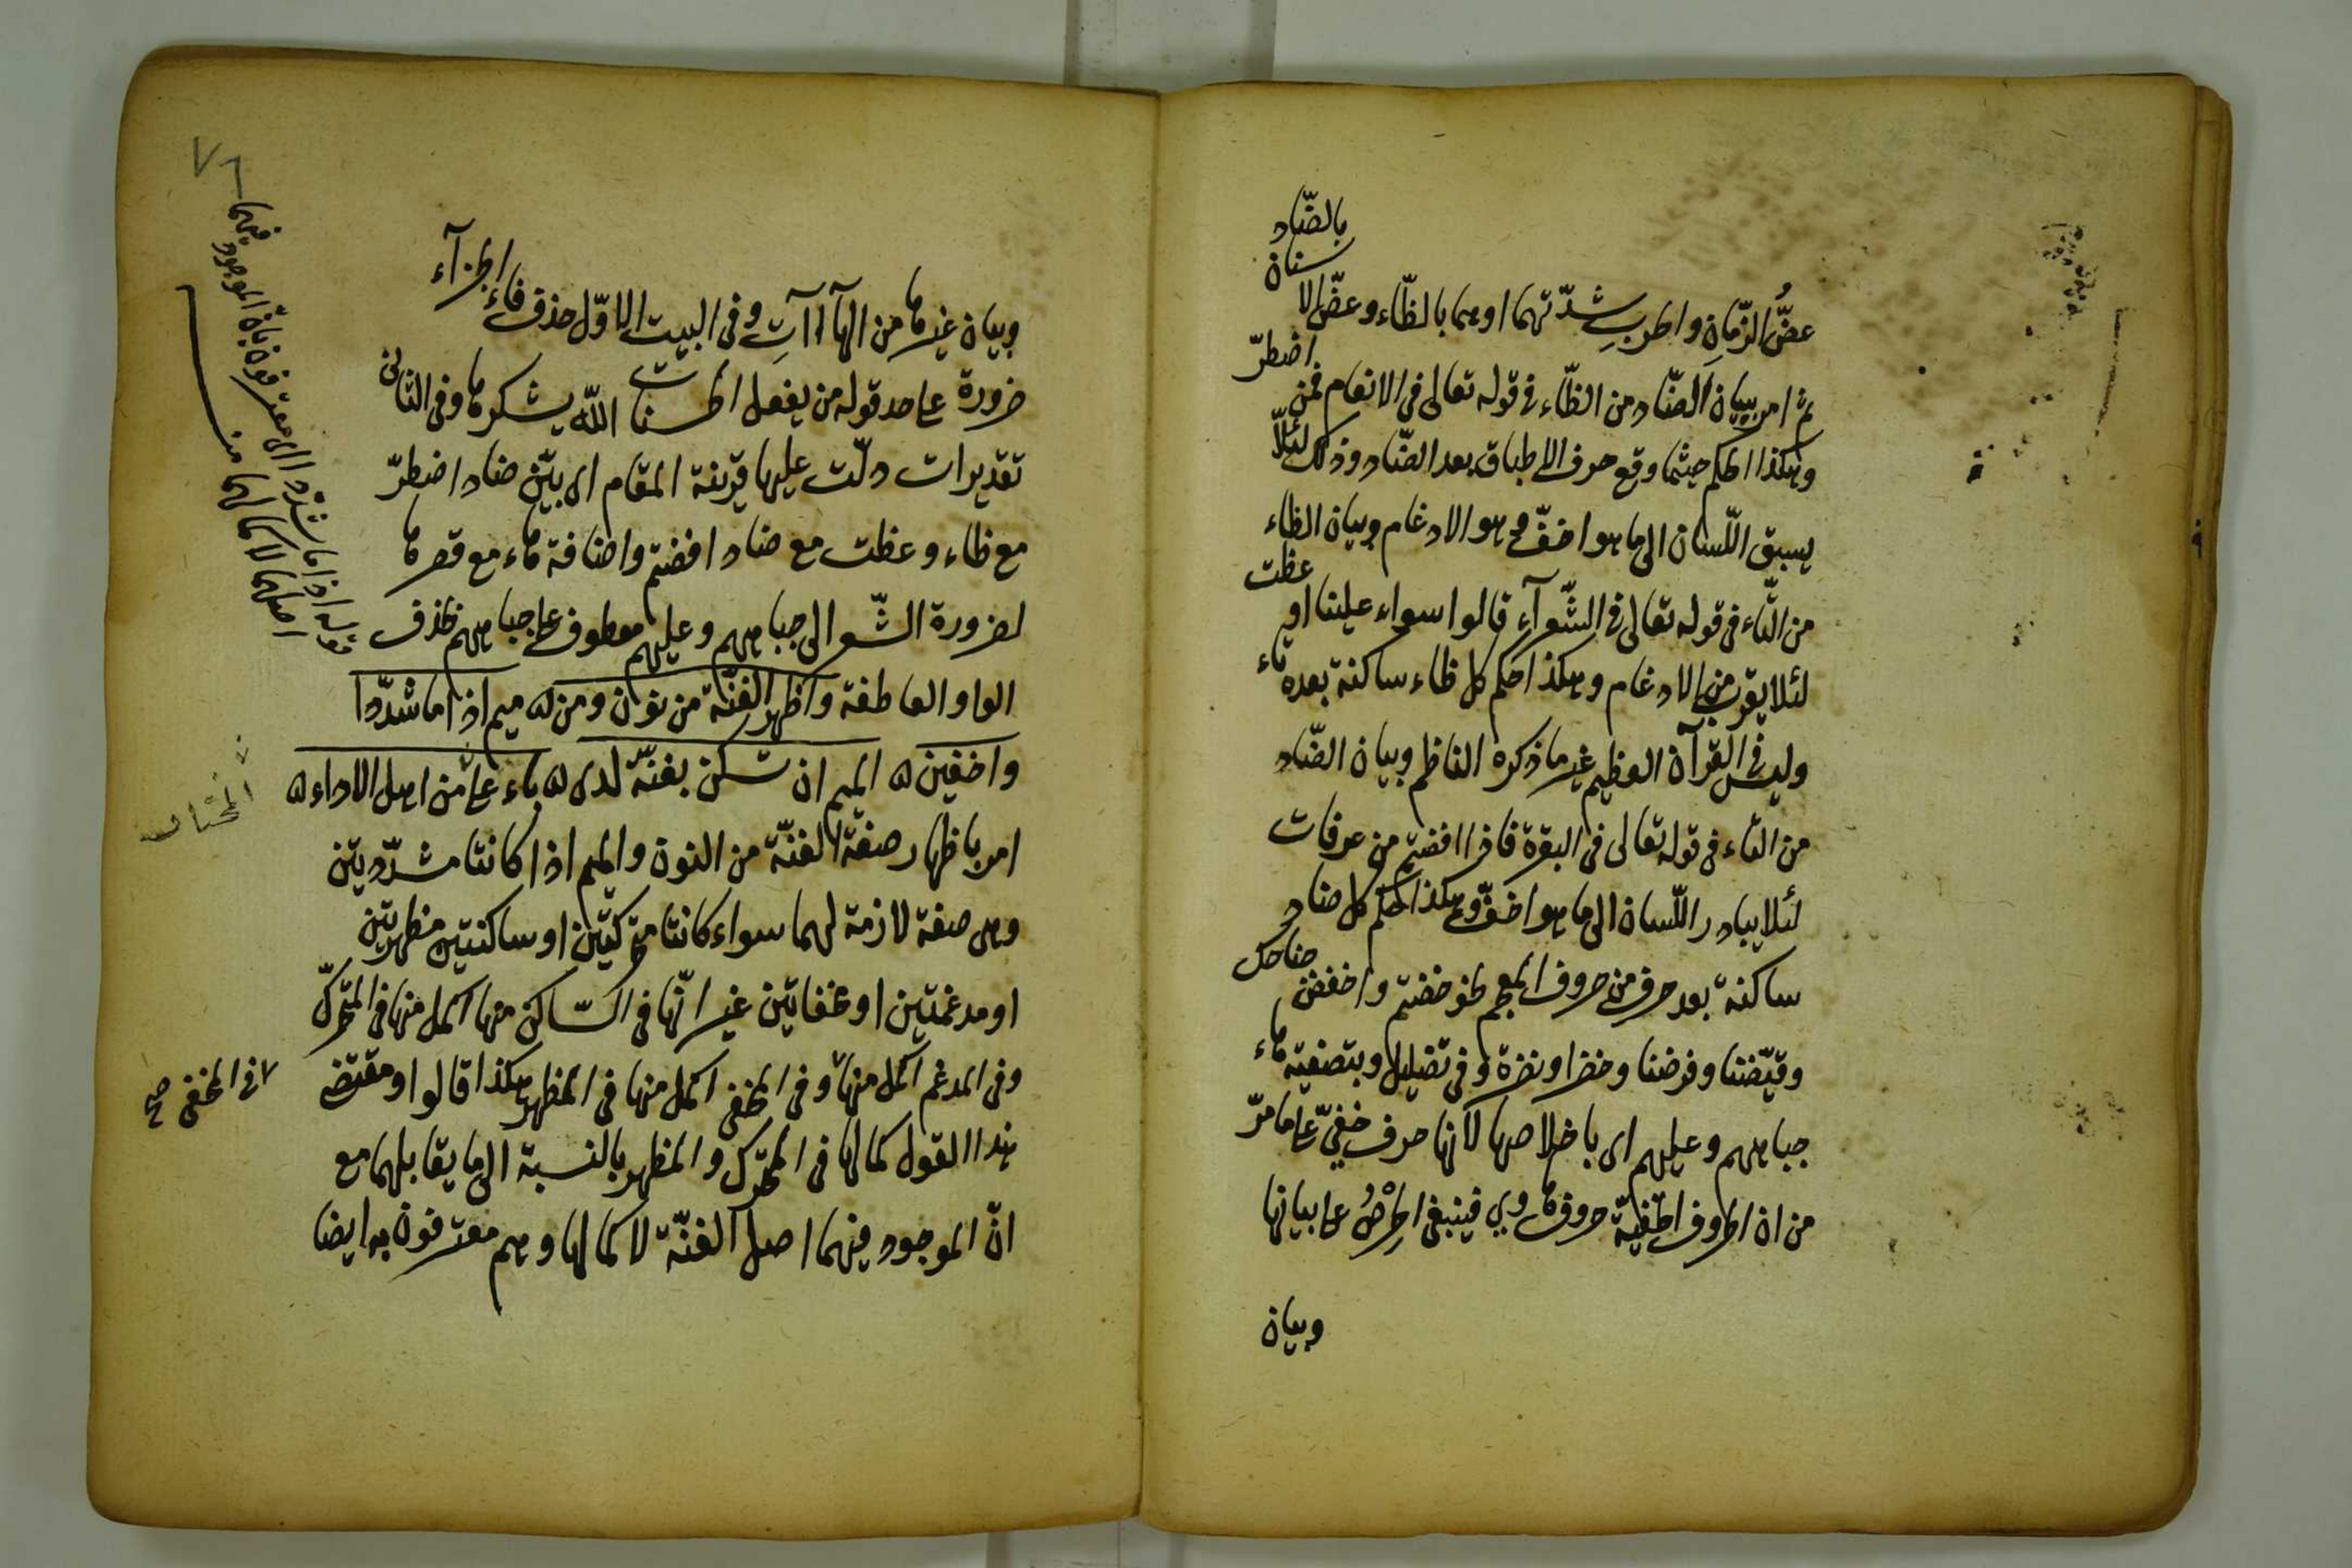 عضُّ الزّمانِ واطربِ شدّتهما او هما بالظّاء وعضّ الاسنان بالضّاد
ثم امر ببيان الضّاد من الظّاء فى قوله تعالى فى الانعام فمن اضطرّ
وهكذا الحكم حيثما وقع حرف الاطباق بعد الضّاد وذلك لئلّا
يسبق اللّسان الى ما هو اخفّ وهو الادغام وبيان الظاء
من التّاء فى قوله تعالى فى الشّعرآء قالوا سواء علينا او عظت
لئلا يقرب من الادغام وهكذا حكم كل ظاء ساكنة بعده تاء
وليس فى القرآن العظيم غير ما ذكره الناظم وبيان الضّاد
من التاء فى قوله تعالى فى البقرة فاذا افضتم من عرفات
لئلا يبادر اللّسان الى ما هو اخفّ وهكذا حكم كل ضاد
ساكنة بعد حرف من حروف المعجم نحو خضتم واخفض جناحك
وقيّضنا وفرضنا وخضرا ونضرة وفى تضليل وبتصفية هاء
جباههم وعليهم اى باخلاصها لانها حرف خفىّ على ما مرّ
من ان الحروف الخفيّة حروف هاوي فينبغى الحِرْصُ على بيانها
وبيان
وبيان غيرها من الهاآت وفى البيت الاوّل حذف فاء الجزآء
ضرورة على حد قوله من يفعل الحسنات الله يشكرها وفى الثانى
تقديرات دلّت عليها قرينة المقام اى بيّن ضاد اضطرّ
مع ظاء وعظت مع ضاد افضتم واضافة هاء مع قصرها
لضرورة الشّعر الى جباههم وعليهم معطوف على جباههم بحذف
الواو العاطفة واظهر الغنّة من نون ومن ه ميم اذا ما شدّدا
واخفين ه الميم ان تسكن بغنّة لدى ه باء على من اهل الاداء ه
المختار
امر باظهار صفة الغنّة من النون والميم اذا كانتا مشدّديتين
وهى صفة لازمة لهما سواء كانتا متحركتين او ساكنتين مظهرتين
او مدغمتين او مخفاتين غير انّها فى السّاكن منها اكمل منها فى المتحرّك
وفى المدغم اكمل منها وفى المخفى اكمل منها فى المظهر هكذا قالوا ومقتضى
فى المخفى صح
هذا القول كمالها فى المتحرّك والمظهر بالنسبة الى ما يقابلهما مع
انّ الموجود فيهما اصل الغنّة لا كمالها وهم معترفون به ايضا
قوله اذا ما شدّدا اى معترفون بان الموجود فيهما
اصلهما لا كمالهما منه